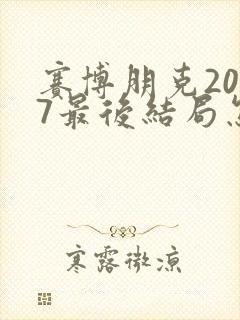 赛博朋克20
7最後結局
寒露微凉